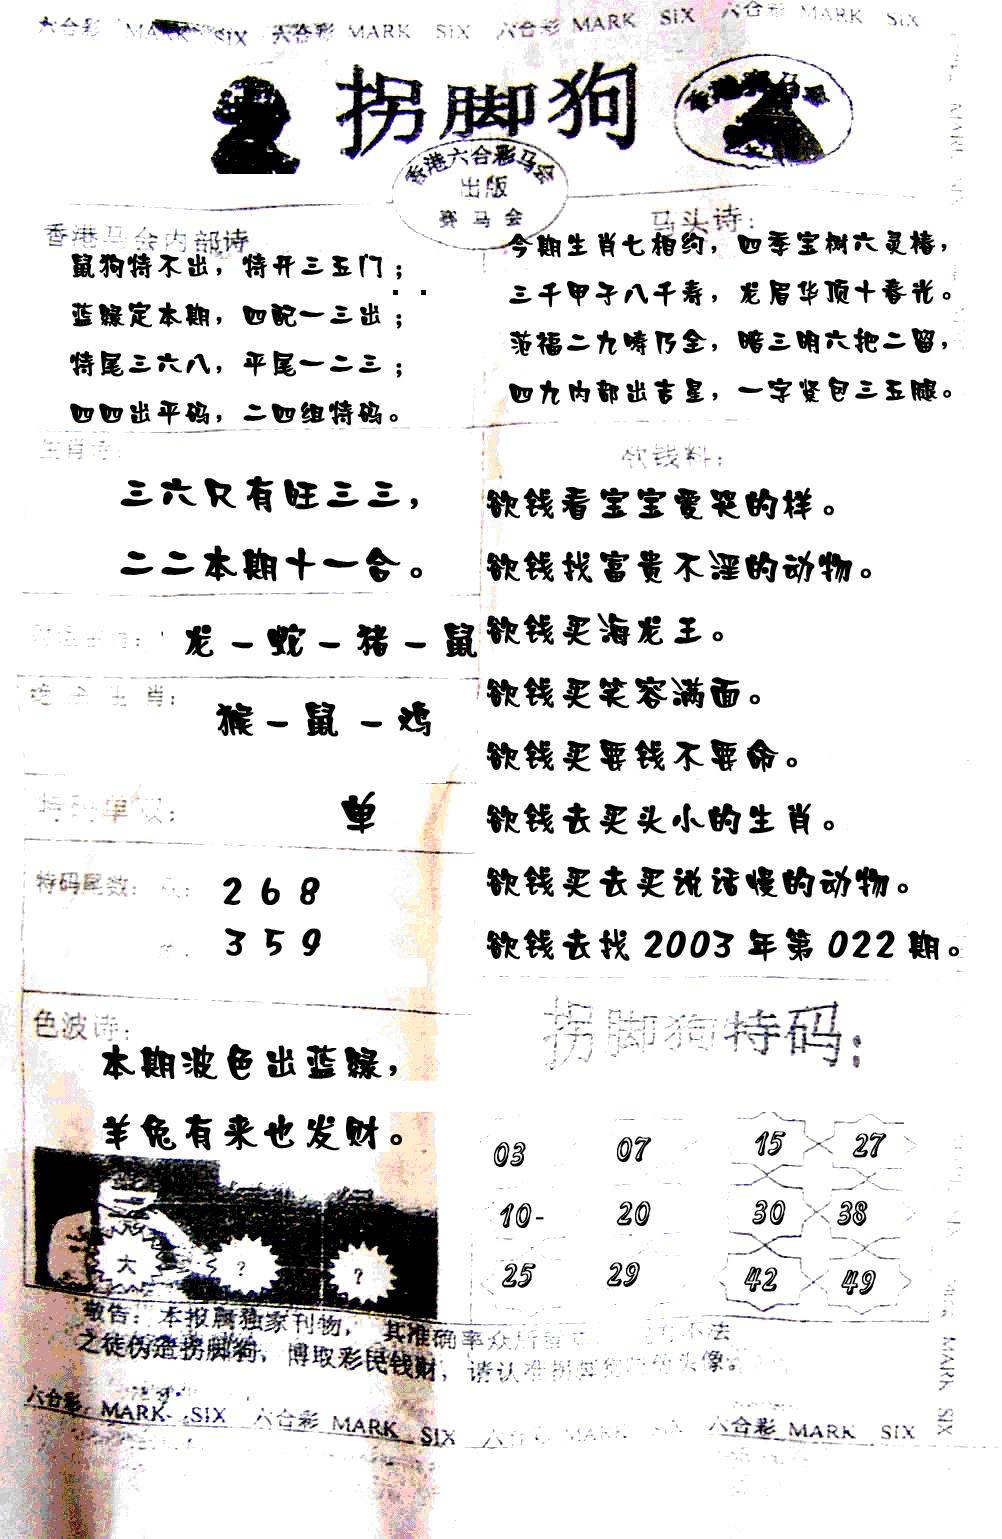 六合彩 MARK SIX 六合彩 MARK SIX 六合彩 MARK SIX 六合彩 MARK SIX
拐脚狗
香港六合彩马会
出版
赛马会
香港马会内部诗
鼠狗特不出，特开三五门；
蓝绿定本期，四配一三出；
特尾三六八，平尾一二三；
四四出平码，二四组特码。
马头诗：
今期生肖七相约，四季宝树六灵椿，
三千甲子八千寿，龙眉华顶十春光。
范福二九畴乃全，暗三明六把二留，
四九内部出吉星，一字竖包三五腿。
生肖诗：
三六只有旺三三，
二二本期十一合。
龙－蛇－猪－鼠
生肖：
猴－鼠－鸡
特码单双：
单
特码尾数：
2 6 8
3 5 9
色波诗：
本期波色出蓝绿，
羊兔有来也发财。
欲钱料：
欲钱看宝宝爱哭的样。
欲钱找富贵不淫的动物。
欲钱买海龙王。
欲钱买笑容满面。
欲钱买要钱不要命。
欲钱去买头小的生肖。
欲钱买去买说话慢的动物。
欲钱去找 2003 年第 022 期。
拐脚狗特码：
03 07 15 27
10- 20 30 38
25 29 42 49
大 ? ?
敬告：本报属独家刊物，其准确率众所 不法
之徒伪造拐脚狗，博取彩民钱财，请认准拐脚狗 头像。
六合彩 MARK SIX 六合彩 MARK SIX 六合彩 MARK SIX 六合彩 MARK SIX
MARK SIX